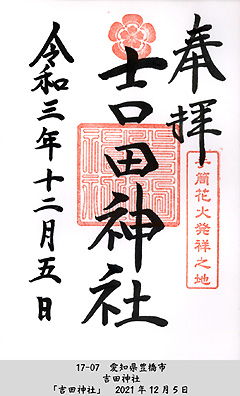 奉拝
筒花火発祥之地
吉田神社
令和三年十二月五日
17-07 愛知県豊橋市
吉田神社
「吉田神社」 2021年12月5日